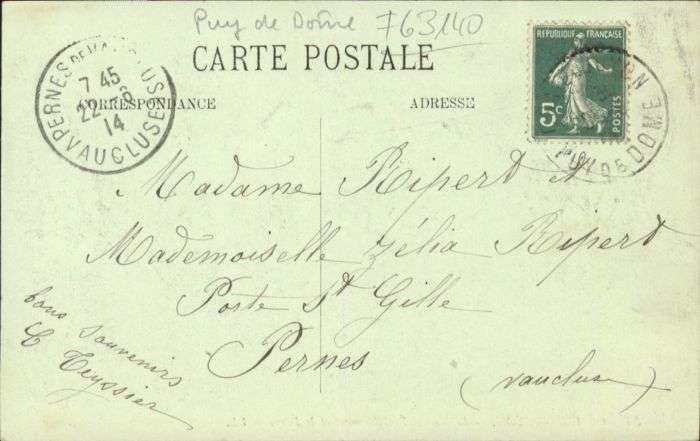 Puy de Dôme 763140
CARTE POSTALE
CORRESPONDANCE
ADRESSE
PERNES DE VAUCLUSE
7 45
22 -6
14
VAUCLUSE
REPUBLIQUE FRANÇAISE
5c
POSTES
PUY DE DOME
Madame Ripert
Mademoiselle Zélia Ripert
Poste St Gille
Pernes
(Vaucluse)
bons souvenirs
C Teyssier